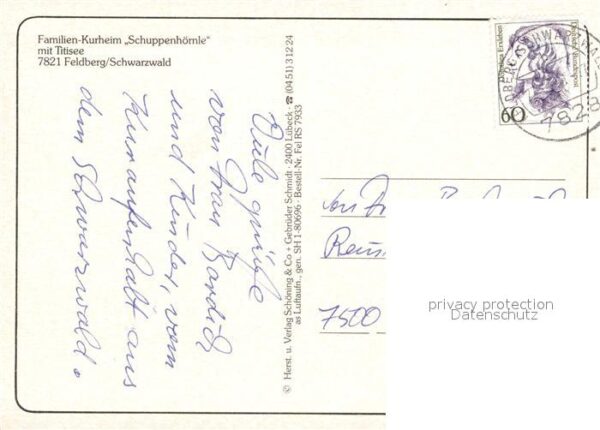 Familien-Kurheim „Schuppenhörnle"
mit Titisee
7821 Feldberg/Schwarzwald
Viele Grüße
von Frau
und Kinder, vom
Kuraufenthalt aus
dem Schwarzwald.
© Herst. u. Verlag Schöning & Co + Gebrüder Schmidt · 2400 Lübeck · ☎ (04 51) 3 12 24
as Luftaufn., gen. SH 1-80696 · Bestell-Nr. Fel RS 7933
60
Deutsche Bundespost
7828
7500
privacy protection
Datenschutz